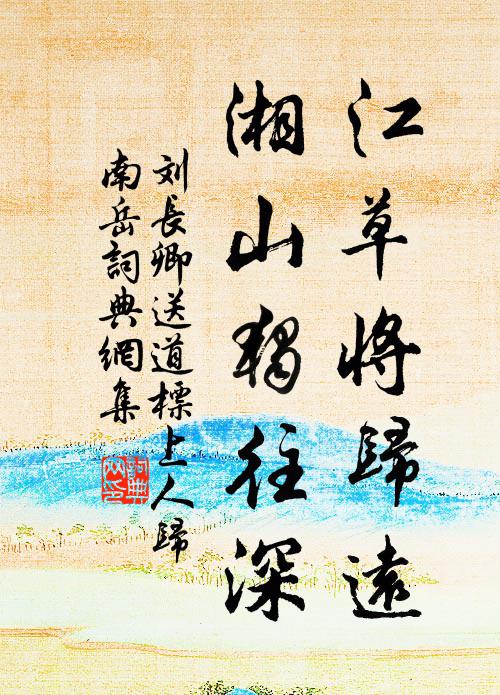 江草將歸遠
湘山獨往深
刘長卿送道標上人歸
南岳詞典網集